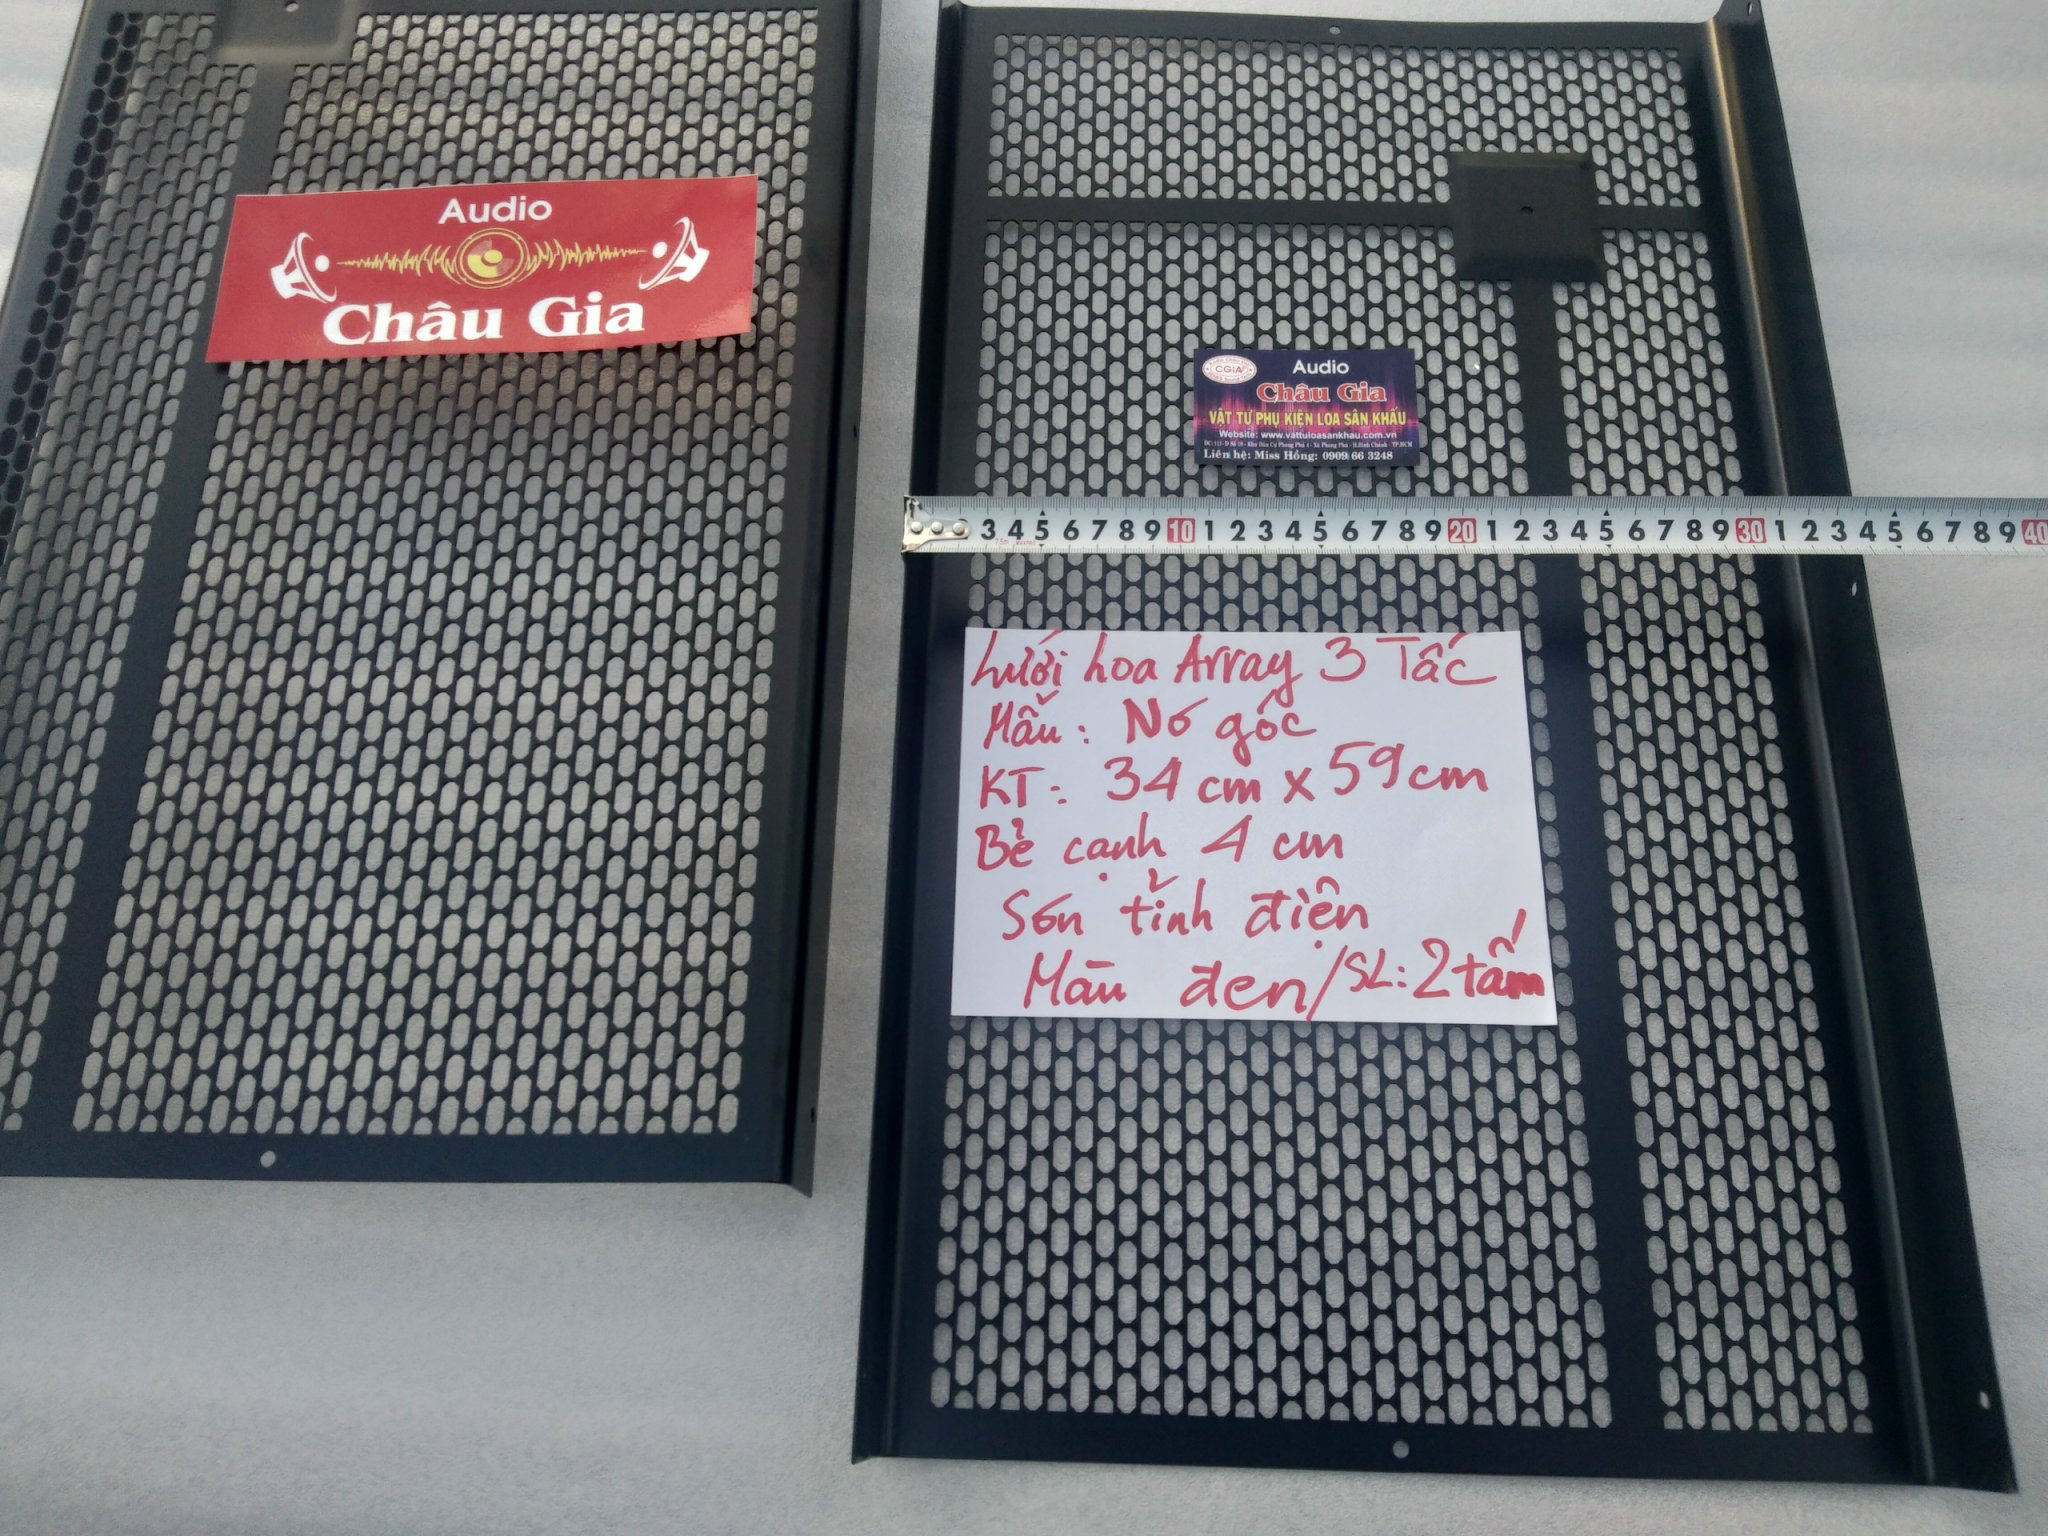 Audio
Châu Gia
CGIA
Audio
Châu Gia
VẬT TƯ PHỤ KIỆN LOA SÂN KHẤU
Website: www.vattuloasankhau.com.vn
Liên hệ: Miss Hồng: 0909 66 3248
3 4 5 6 7 8 9 10 1 2 3 4 5 6 7 8 9 20 1 2 3 4 5 6 7 8 9 30 1 2 3 4 5 6 7 8 9 40
Lưới Loa Array 3 Tấc
Mẫu: Nơ gốc
KT: 34 cm x 59 cm
Bẻ cạnh 4 cm
Sơn tĩnh điện
Màu đen/SL: 2 tấm